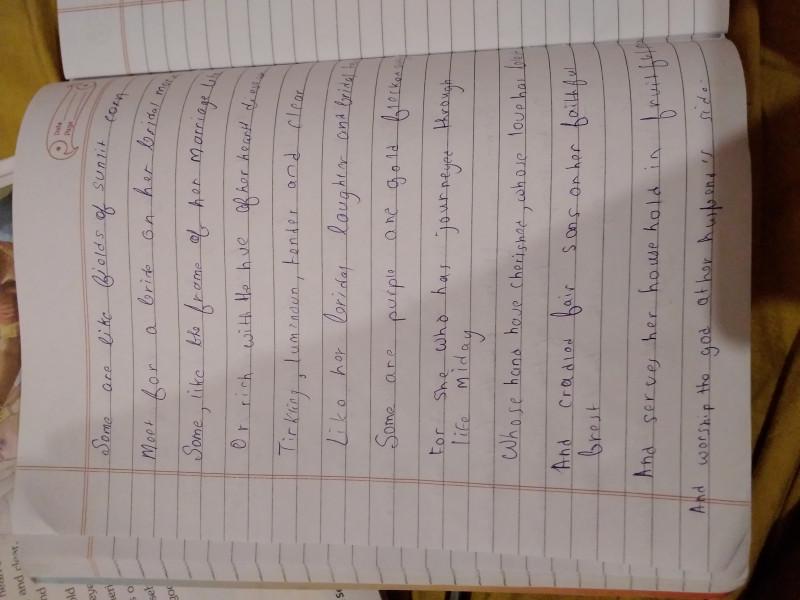 Date
Page
Some are like fields of sunlit corn
Meet for a bride on her bridal
Some, like the frame of her marriage
Or rich with the hue of her heart
Tinkling, luminoun, tender and clear
Like her bridal laughter and bridal
Some are purple are gold
For she who has journeyed through
life miday
Whose hand have cherished, whose love has
And cradled fair sons on her faithful
brest
And serves her household in
And worship the god at her husband's side.